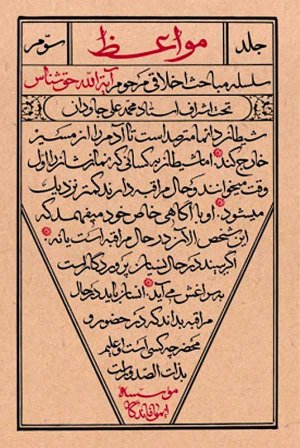 جلد
مواعظ
سوم
سلسله مباحث اخلاقی مرحوم آیة الله حق شناس
تحت اشراف استاد محمد علی جاودان
شیطان دائما مترصد است تا آدم را از مسیر
خارج کند. اما شیطان به کسانی که نمازشان را اول
وقت میخوانند و حال مراقبه دارند کمتر نزدیک
میشود. او با آگاهی خاص خود میفهمد که
این شخص الآن در حال مراقبه است یا نه.
اگر ببیند در حال نسیان پروردگار است
به سراغش می آید. انسان باید در حال
مراقبه بداند که در حضور و
محضر چه کسی است او علیم
بذات الصدور است
موسسه